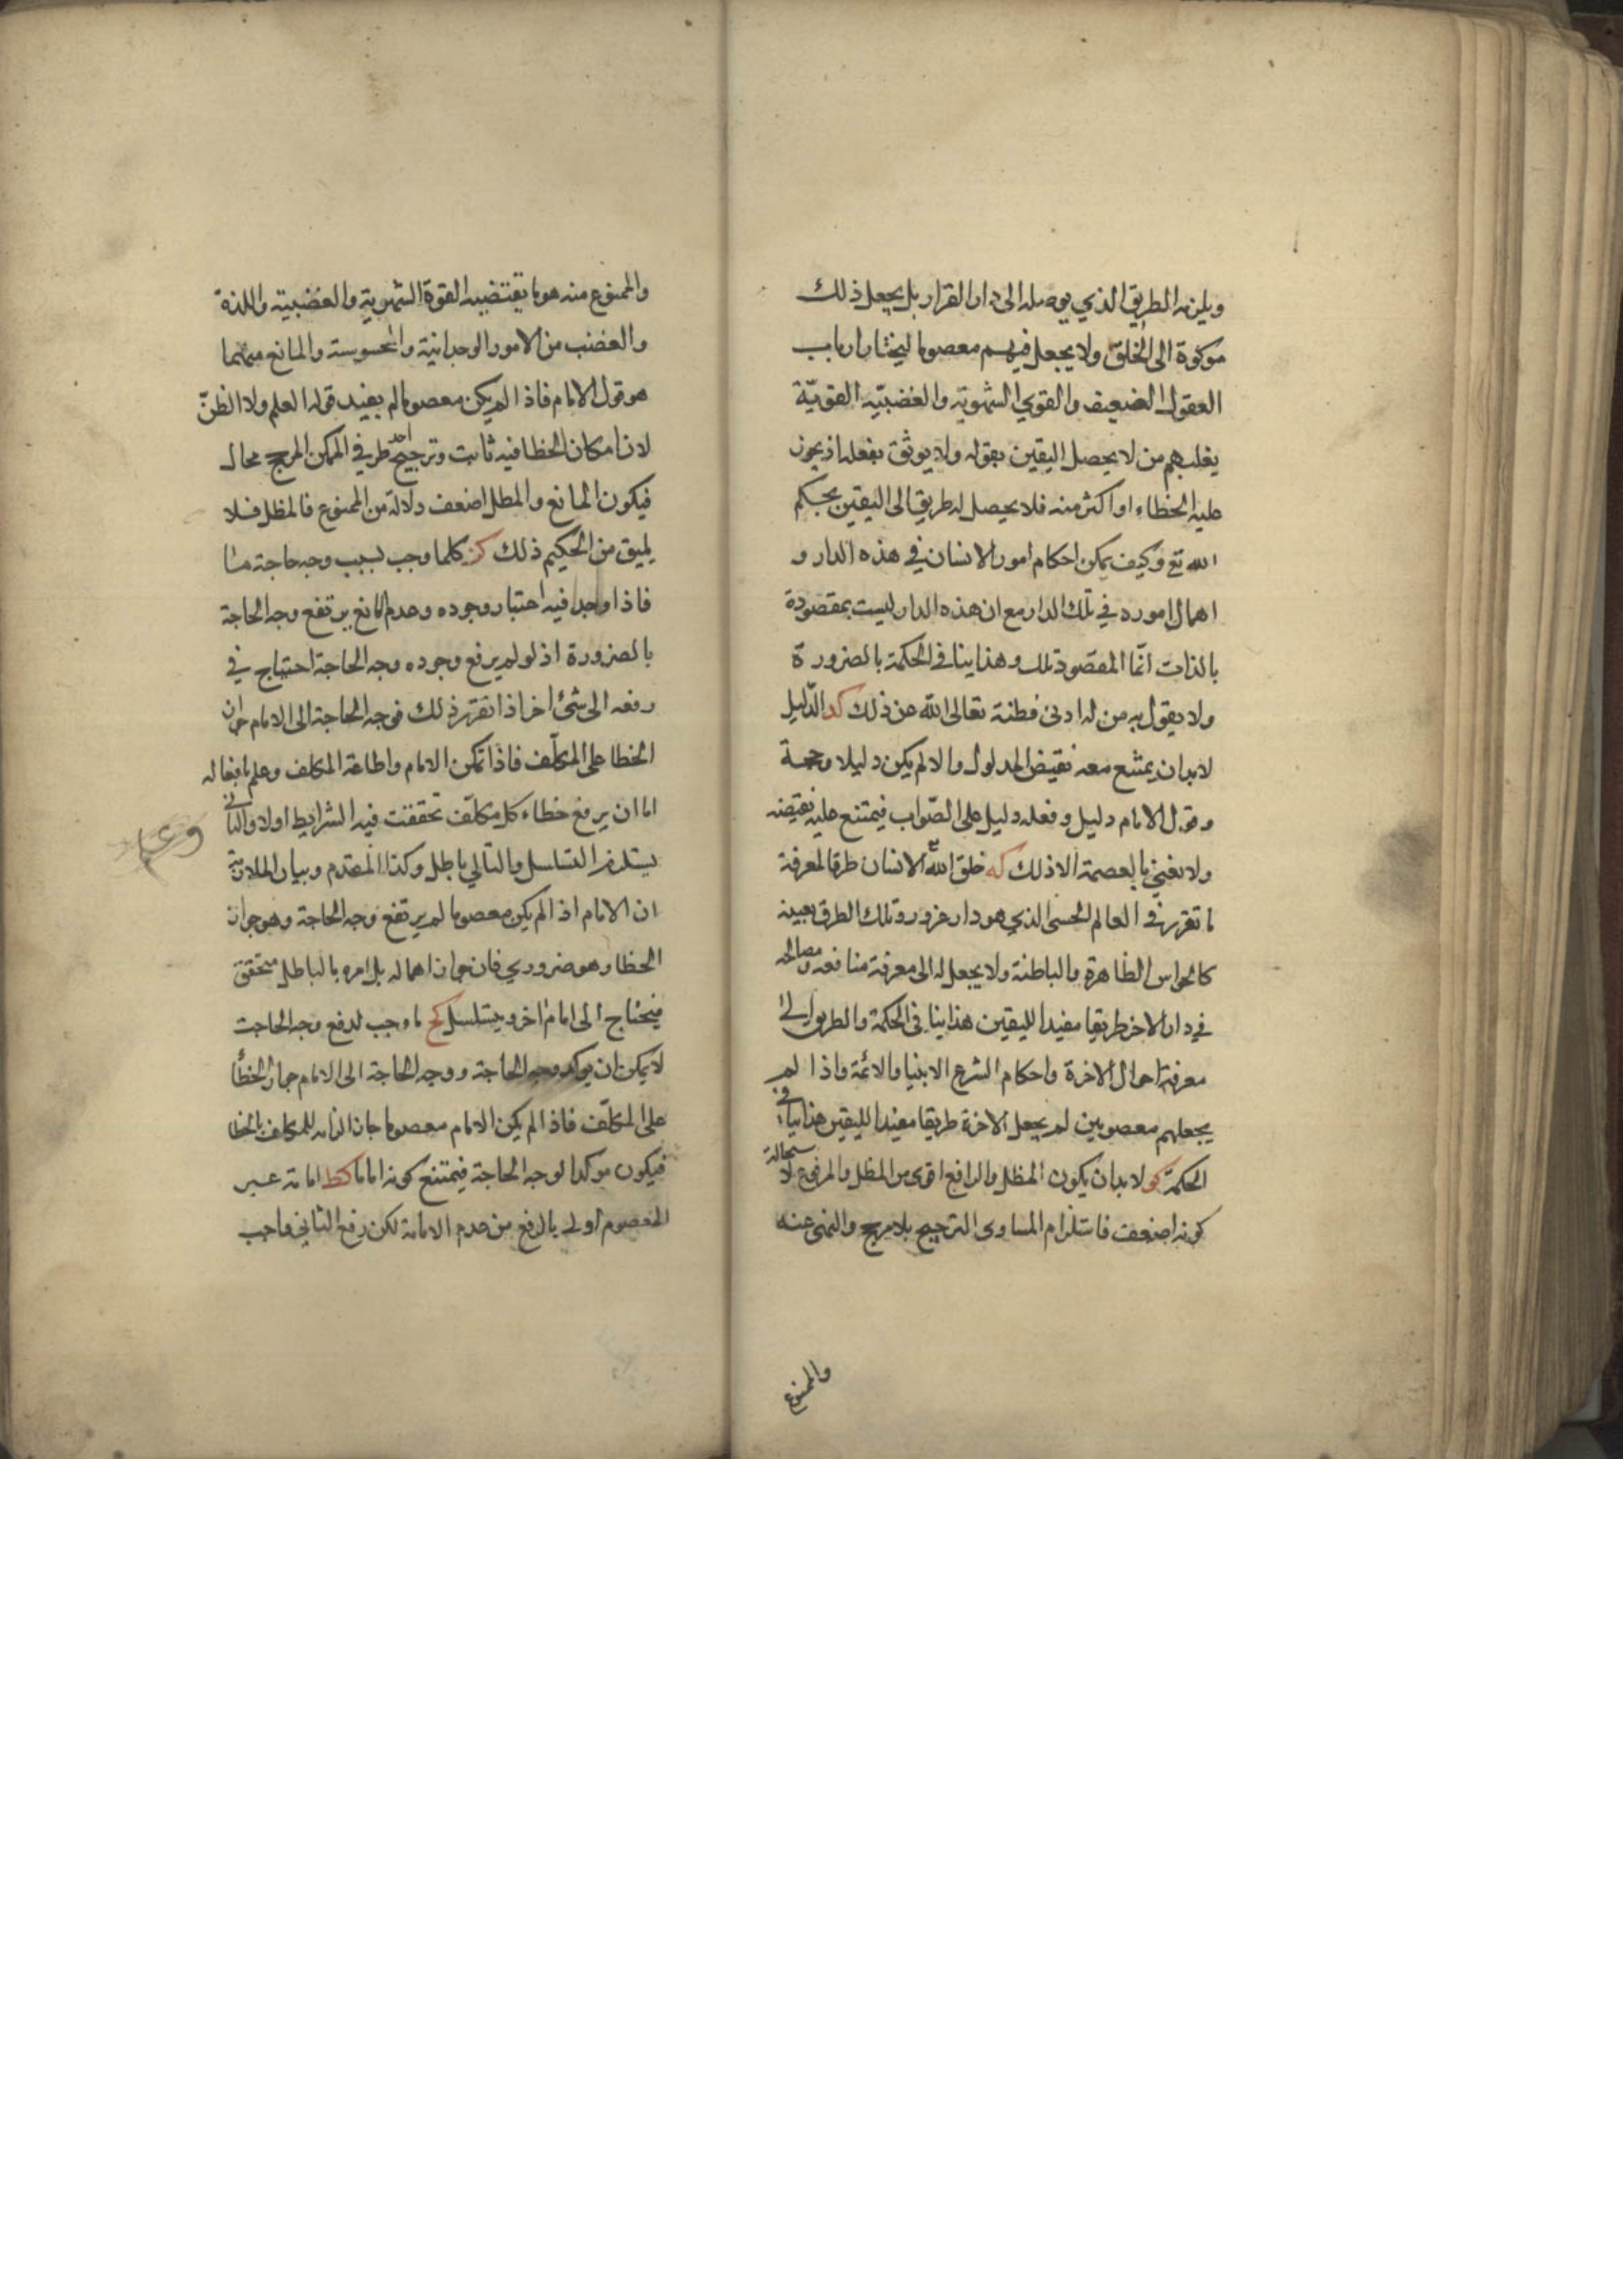 ويلزمه الطريق الذي يوصله الى دار القرار بل يجعل ذلك
موكوة الى الخلق ولا يجعل فيهم معصوما ليختار ارباب
العقول الضعيف والقوي الشهوية والغضبيّة القويّة
يغلبهم من لا يحصل اليقين بقوله ولا يوثق بفعله اذ يجوز
عليه الخطاء او اكثر منه فلا يحصل له طريق الى اليقين بحكم
الله تع وكيف يمكن احكام امور الانسان في هذه الدار و
اهمال اموره في تلك الدار مع ان هذه الدار ليست بمقصودة
بالذات انّما المقصود تلك وهذا ينافي الحكمة بالضرورة
ولا يقول به من له ادنى فطنة تعالى الله عن ذلك كد الدّليل
لا بدان يمتنع معه نقيض المدلول والا لم يكن دليلا وحجة
وقول الامام دليل وفعله دليل على الصّواب فيمتنع عليه نقيضه
ولا نعني بالعصمة الا ذلك كه خلق الله الانسان طرقا لمعرفة
ما تقرر في العالم الحسي الذي هو دار غرور وتلك الطرق بعينه
كالحواس الظاهرة والباطنة ولا يجعل له الى معرفة منافعه ومصالحه
في دار الاخر طريقا مفيدا لليقين هذا ينافي الحكمة والطريق الى
معرفة احوال الاخرة واحكام الشرع الانبيا والائمة واذا لم
يجعلهم معصومين لم يجعل الاخرة طريقا مفيدا لليقين هذا ينافي
الحكمة كو لا بدان يكون المظل والرافع اقوى من المظل والمرفوع لاستحالة
كونه اضعف فاستلزام المساوى الترجيح بلا مرجح والنمى عنه
والممنوع
والممنوع منه هو ما يقتضيه القوة الشهوية والغضبية واللذة
والغضب من الامور الوجدانية والمحسوسة والمانع منهما
هو قول الامام فاذا لم يكن معصوما لم يفيد قوله العلم ولا الظنّ
لان امكان الخطا فيه ثابت وترجيح احد طرفي الممكن المرجح محال
فيكون المانع والمظل اضعف دلالة من الممنوع فالمظل فلا
يليق من الحكيم ذلك كز كلما وجب لسبب وجه حاجة ما
فاذا وجد فيه اعتبار وجوده وعدم المانع يرتفع وجه الحاجة
بالضرورة اذ لو لم يرفع وجوده وجه الحاجة احتياج في
رفعه الى شئ اخر اذا تقرر ذلك فوجه الحاجة الى الامام جواز
الخطا على المكلّف فاذا تمكن الامام واطاعة المكلف وعلم بافعاله
اما ان يرفع خطاء كل مكلّف تحققت فيه الشرايط اولا والثاني
يستلزم التسلسل والتالي باطل وكذا المقدم وبيان الملازمة
ان الامام اذا لم يكن معصوما لم يرتفع وجه الحاجة وهو جواز
الخطا وهو ضروري فان جواز اهماله بل امره بالباطل متحقق
فيحتاج الى امام اخر ويتسلسل كح ما وجب لدفع وجه الحاجت
لا يمكن ان يوكد وجه الحاجة ووجه الحاجة الى الامام جواز الخطأ
على المكلّف فاذا لم يكن الامام معصوما جاز الزامه للمكلف بالخطا
فيكون موكدا لوجه الحاجة فيمتنع كونه اماما كط امامة غير
المعصوم اولى بالرفع من عدم الامامة لكن رفع الثاني واجب